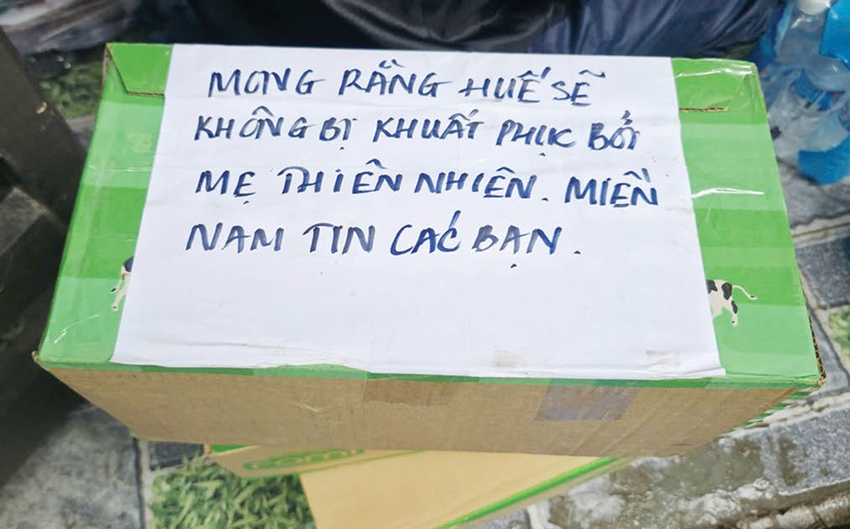 MONG RẰNG HUẾ SẼ
KHÔNG BỊ KHUẤT PHỤC BỞI
MẸ THIÊN NHIÊN. MIỀN
NAM TIN CÁC BẠN.